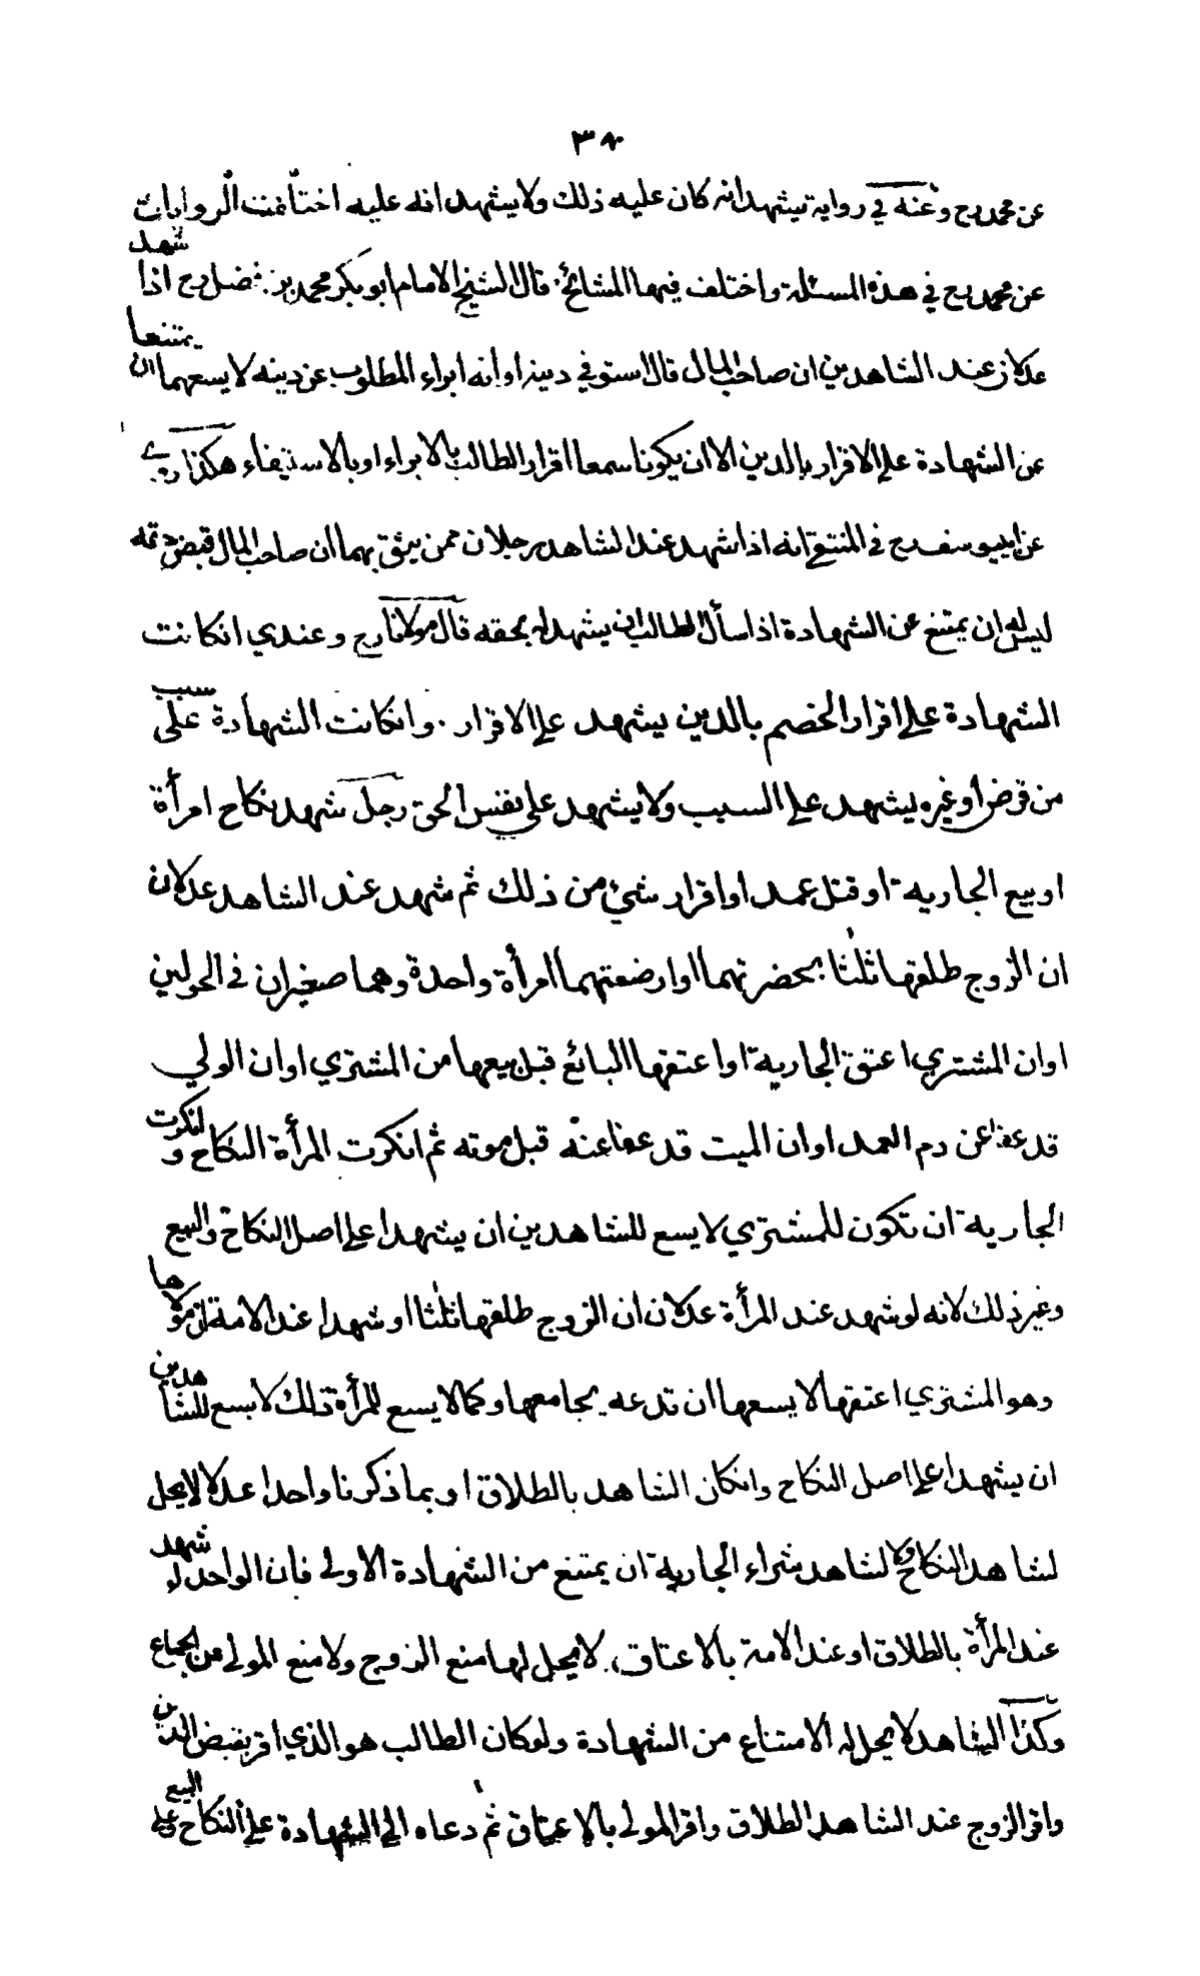 ٣٨
عن محمد رح وعنه في رواية يشهد انه كان عليه ذلك ولا يشهد انه عليه اختلفت الروايات
عن محمد رح في هذه المسئلة واختلف فيها المشائخ قال الشيخ الامام ابو بكر محمد بن فضل رح اذا شهد
عدلان عند الشاهدين ان صاحب المال قال استوفي دينه او انه ابراء المطلوب عن دينه لا يسعهما ان يمتنعا
عن الشهادة على الاقرار بالدين الا ان يكونا سمعا اقرار الطالب بالابراء او بالاستيفاء هكذا روي
عن ابييوسف رح في المنتقى انه اذا شهد عند الشاهد رجلان ممن يثق بهما ان صاحب المال قبض حقه
ليس له ان يمتنع عن الشهادة اذا سأل الطالب ان يشهد له بحقه قال مولانا رح وعندي انكانت
الشهادة على اقرار الخصم بالدين يشهد على الاقرار وانكانت الشهادة على سبب
من قرض اوغيره يشهد على السبب ولا يشهد على نفس الحق رجل شهد بنكاح امرأة
او بيع الجارية او قتل عمد او اقرار شئ من ذلك ثم شهد عند الشاهد عدلان
ان الزوج طلقها ثلثا بحضرتهما او ارضعتهما امرأة واحدة وهما صغيران في الحولين
او ان المشتري اعتق الجارية او اعتقها البائع قبل بيعها من المشتري او ان الولي
قد عفا عن دم العمد او ان الميت قد عفا عنه قبل موته ثم انكرت المرأة النكاح و انكرت
الجارية ان تكون للمشتري لا يسع للشاهدين ان يشهدا على اصل النكاح والبيع
وغير ذلك لانه لو شهد عند المرأة عدلان ان الزوج طلقها ثلثا او شهدا عند الامة ان مولاها
وهو المشتري اعتقها لا يسعها ان تدعه يجامعها وكما لا يسع للمرأة ذلك لا يسع للشاهدين
ان يشهدا على اصل النكاح وانكان الشاهد بالطلاق او بما ذكرنا واحدا عدلا لا يحل
لشاهد النكاح ولا لشاهد شراء الجارية ان يمتنع من الشهادة الاولى فان الواحد لو شهد
عند المرأة بالطلاق او عند الامة بالاعتاق لا يحل لها منع الزوج ولا منع المولى من الجماع
وكذا الشاهد لا يحل له الامتناع من الشهادة ولو كان الطالب هو الذي اقر بقبض الدين
واقر الزوج عند الشاهد الطلاق واقر المولى بالاعتاق ثم دعاه الى الشهادة على النكاح وعلى البيع